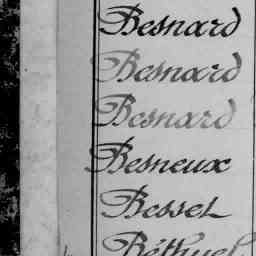 Besnard
Besnard
Besnard
Besneux
Bessel
Béthuel